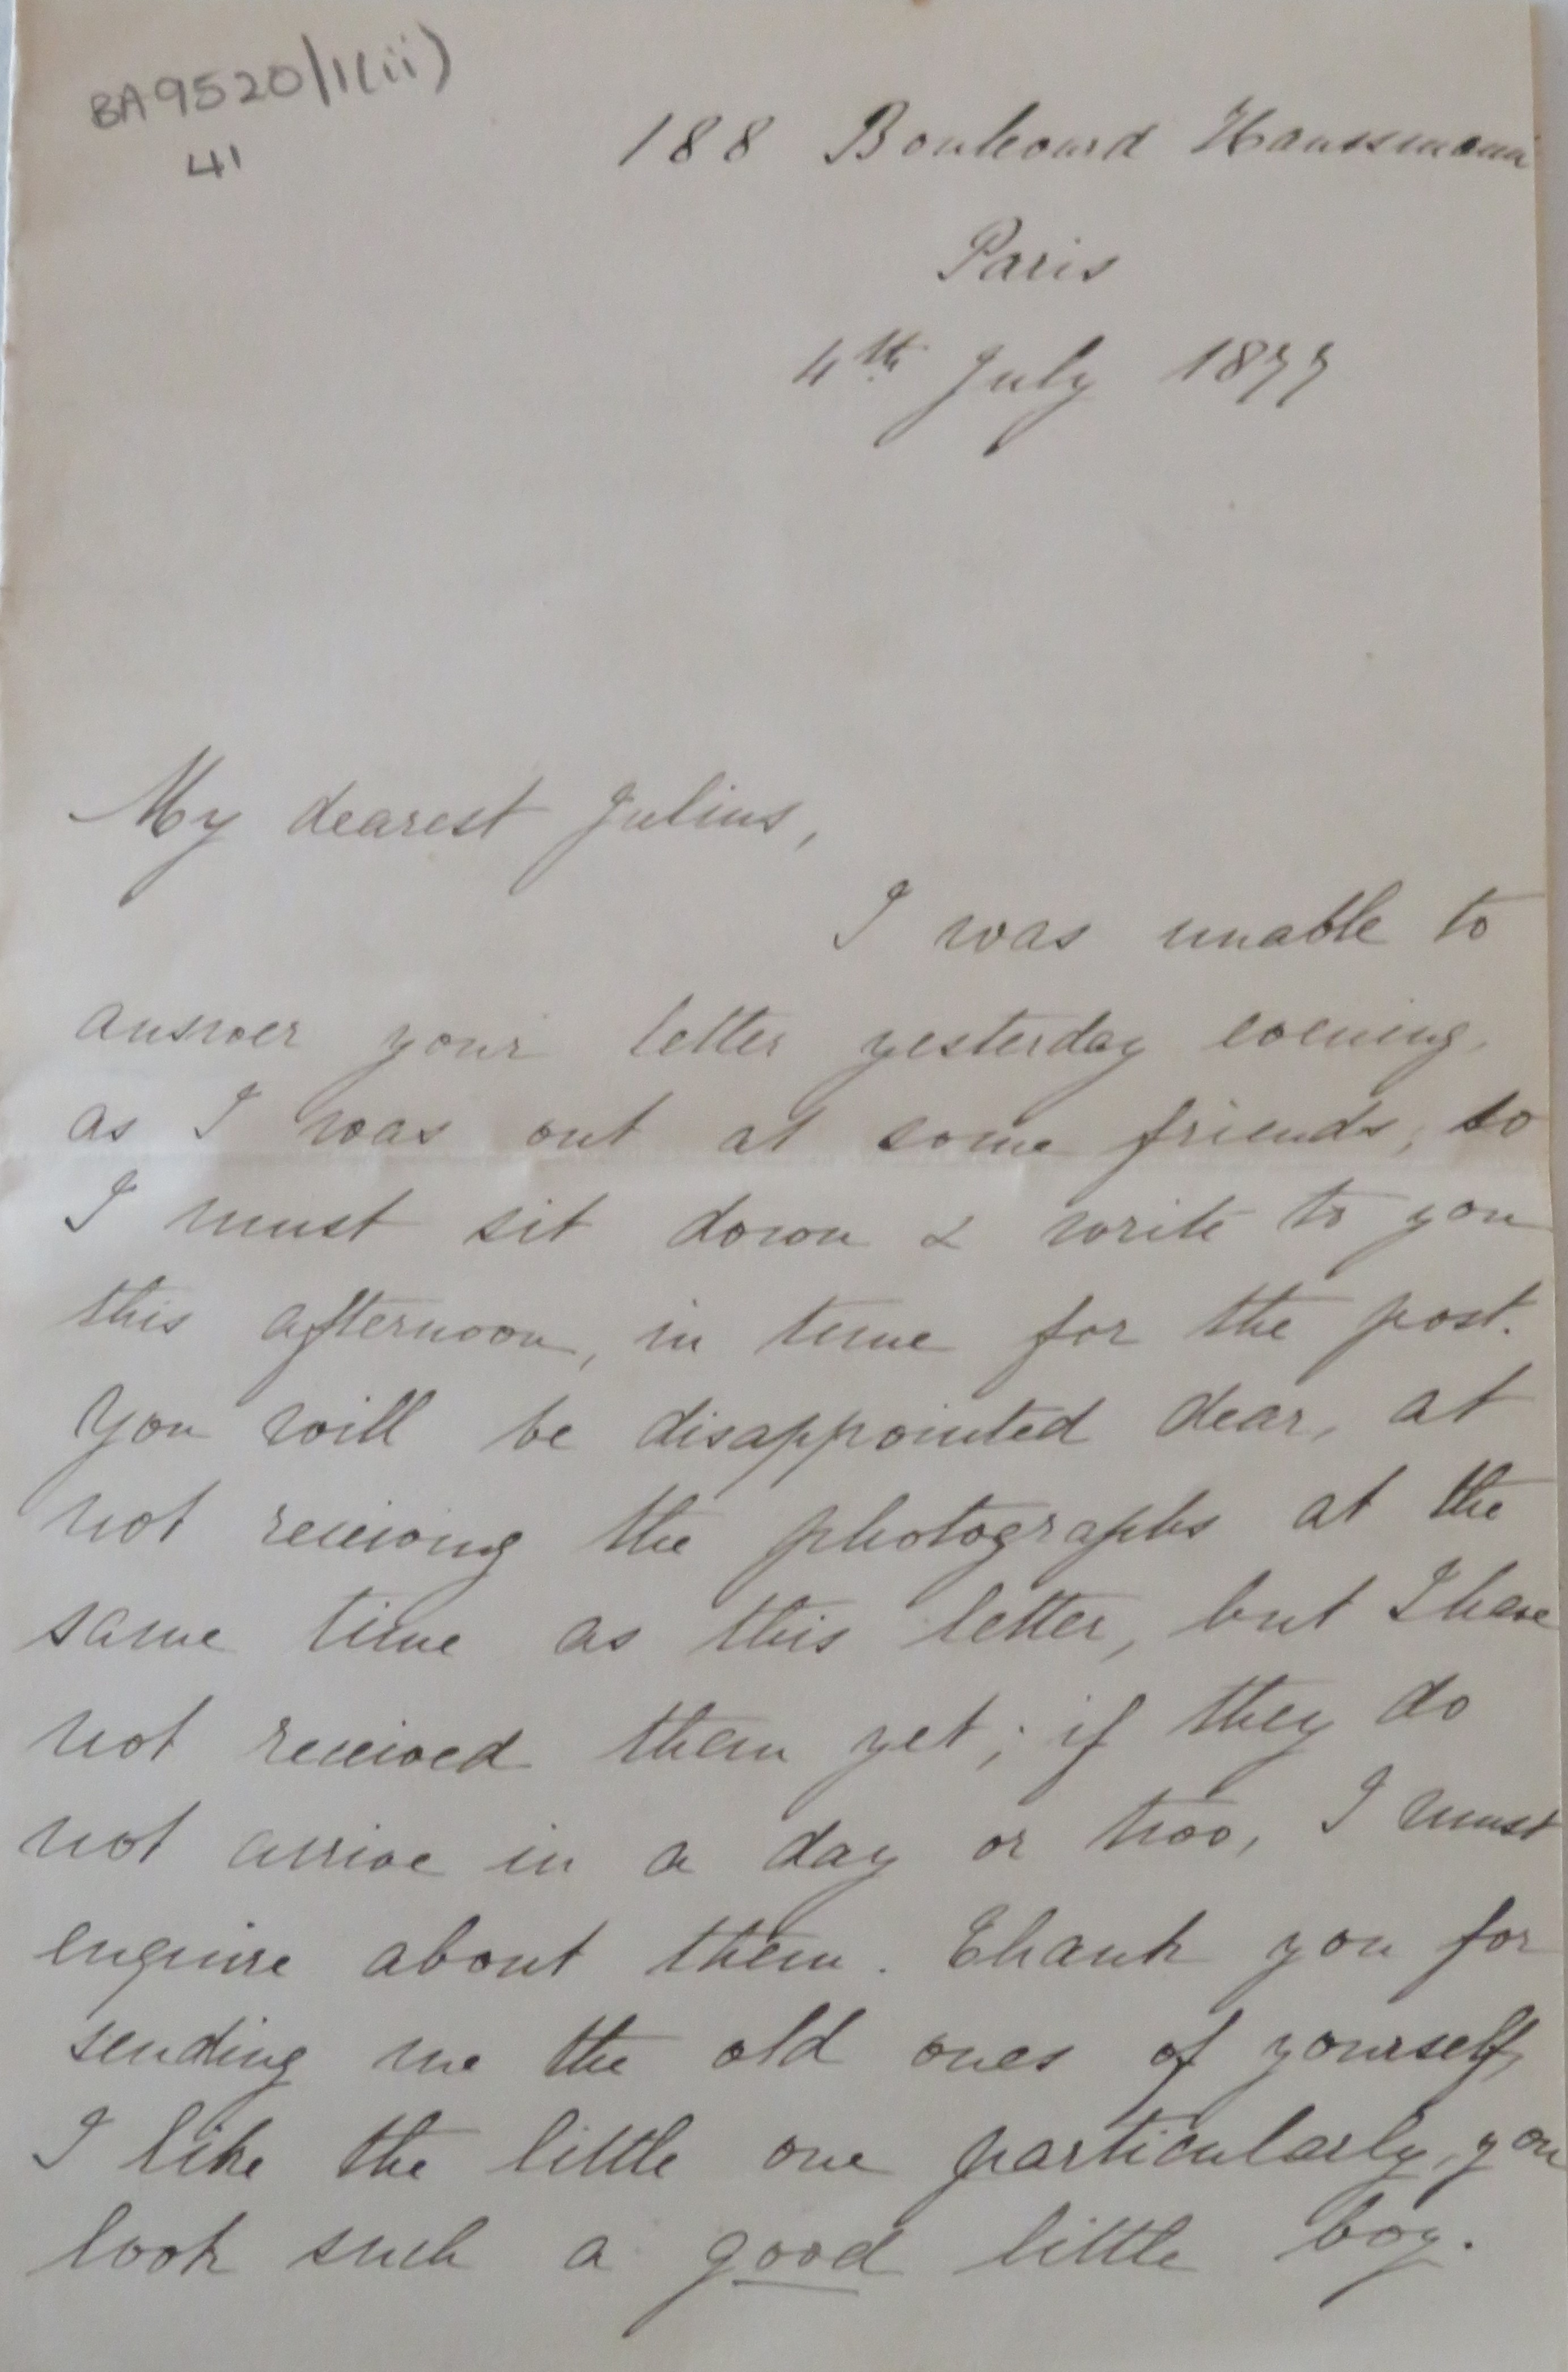 BA9520/1(ii)
41
188 Boulevard Haussmann
Paris
4th July 1877
My dearest Julius,
I was unable to
answer your letter yesterday evening,
as I was out at some friends, so
I must sit down & write to you
this afternoon, in time for the post.
You will be disappointed dear, at
not receiving the photographs at the
same time as this letter, but I have
not received them yet; if they do
not arrive in a day or two, I must
enquire about them. Thank you for
sending me the old ones of yourself,
I like the little one particularly, you
look such a good little boy.